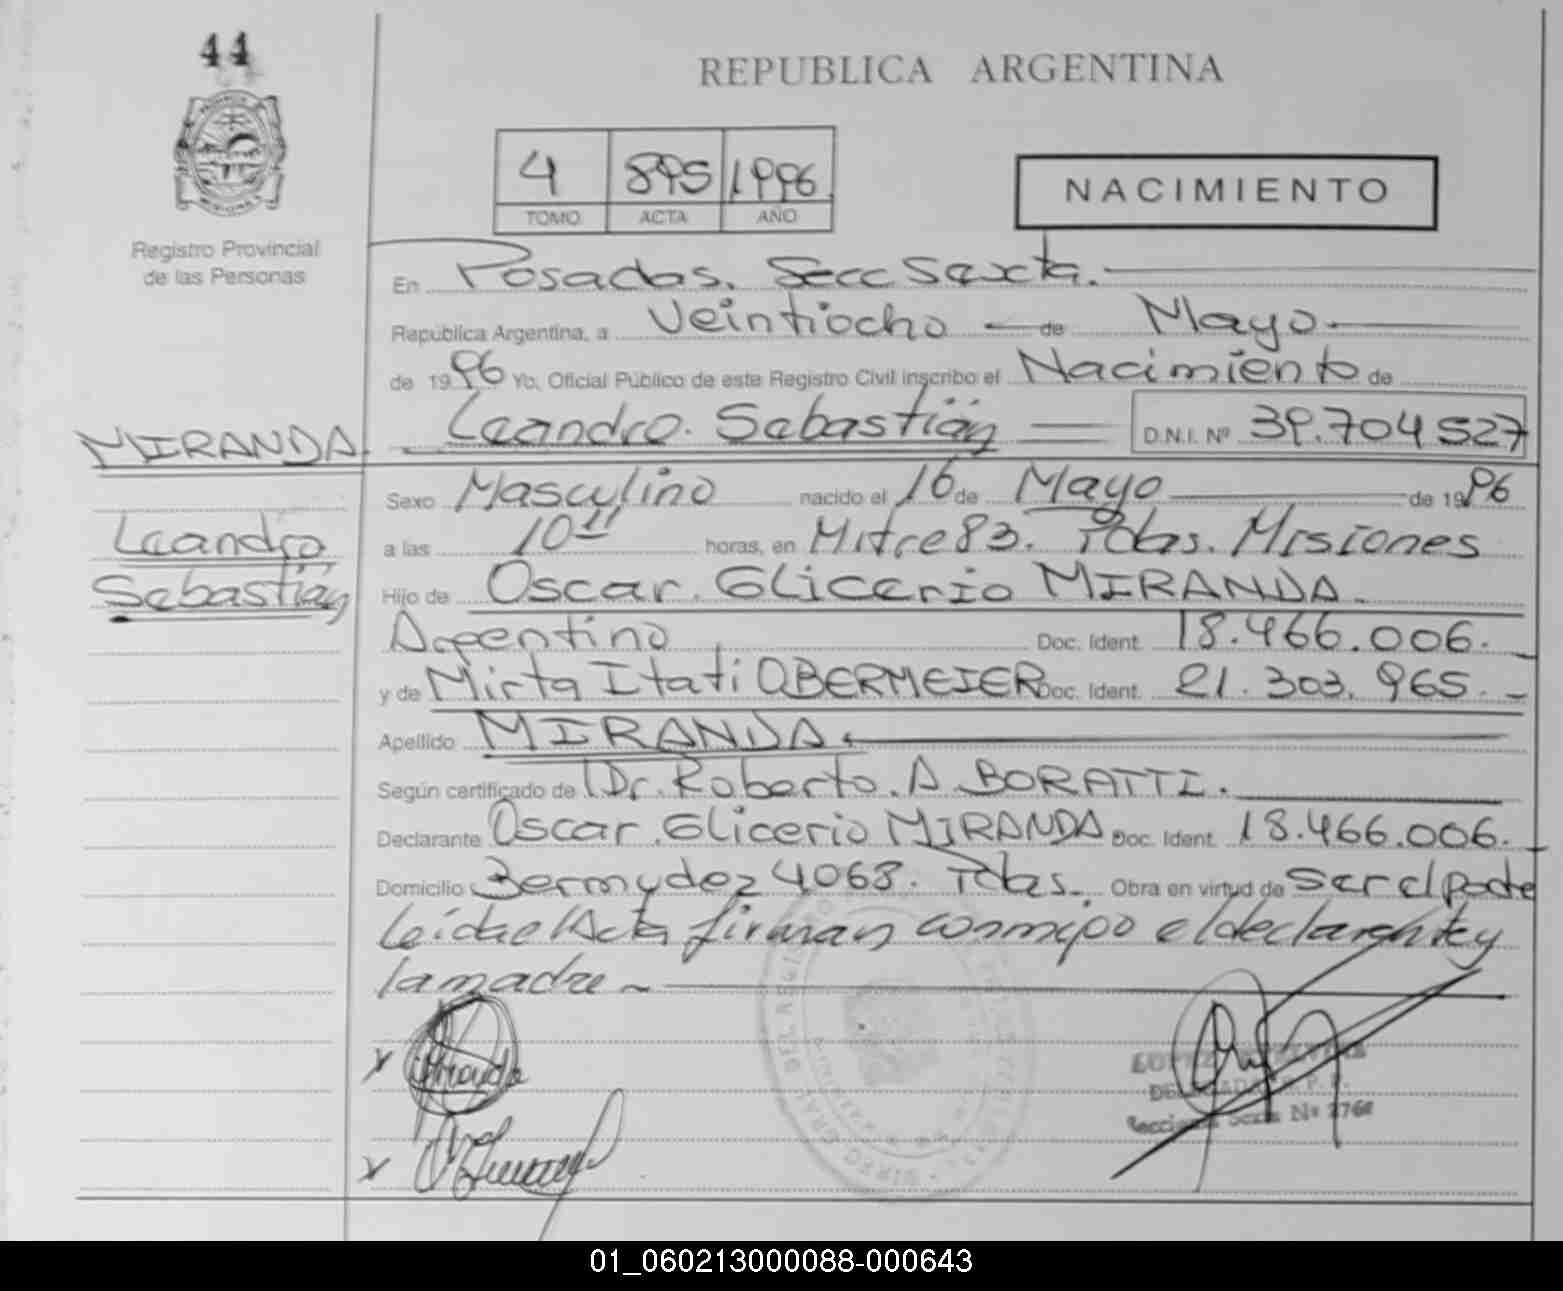 44
REPUBLICA ARGENTINA
4 895 1996
TOMO ACTA AÑO
NACIMIENTO
Registro Provincial
de las Personas
En Posadas. Secc Sexta.
República Argentina, a Veintiocho de Mayo
de 1996 Yo, Oficial Público de este Registro Civil inscribo el Nacimiento de
MIRANDA Leandro Sebastián D.N.I. Nº 39.704527
Leandro
Sebastián
Sexo Masculino nacido el 16 de Mayo de 1996
a las 10 horas, en Mitre 83. Pdas. Misiones
Hijo de Oscar Glicerio MIRANDA.
Argentino Doc. Ident. 18.466.006.
y de Mirta Itati OBERMEIER Doc. Ident. 21.303.965.
Apellido MIRANDA.
Según certificado de Dr. Roberto. A. BORATTI.
Declarante Oscar. Glicerio MIRANDA. Doc. Ident. 18.466.006.
Domicilio Bermudez 4063. Pdas. Obra en virtud de ser el padre
leída el Acta firman conmigo el declarante y
la madre
LOPEZ
Nº 2768
01_060213000088-000643